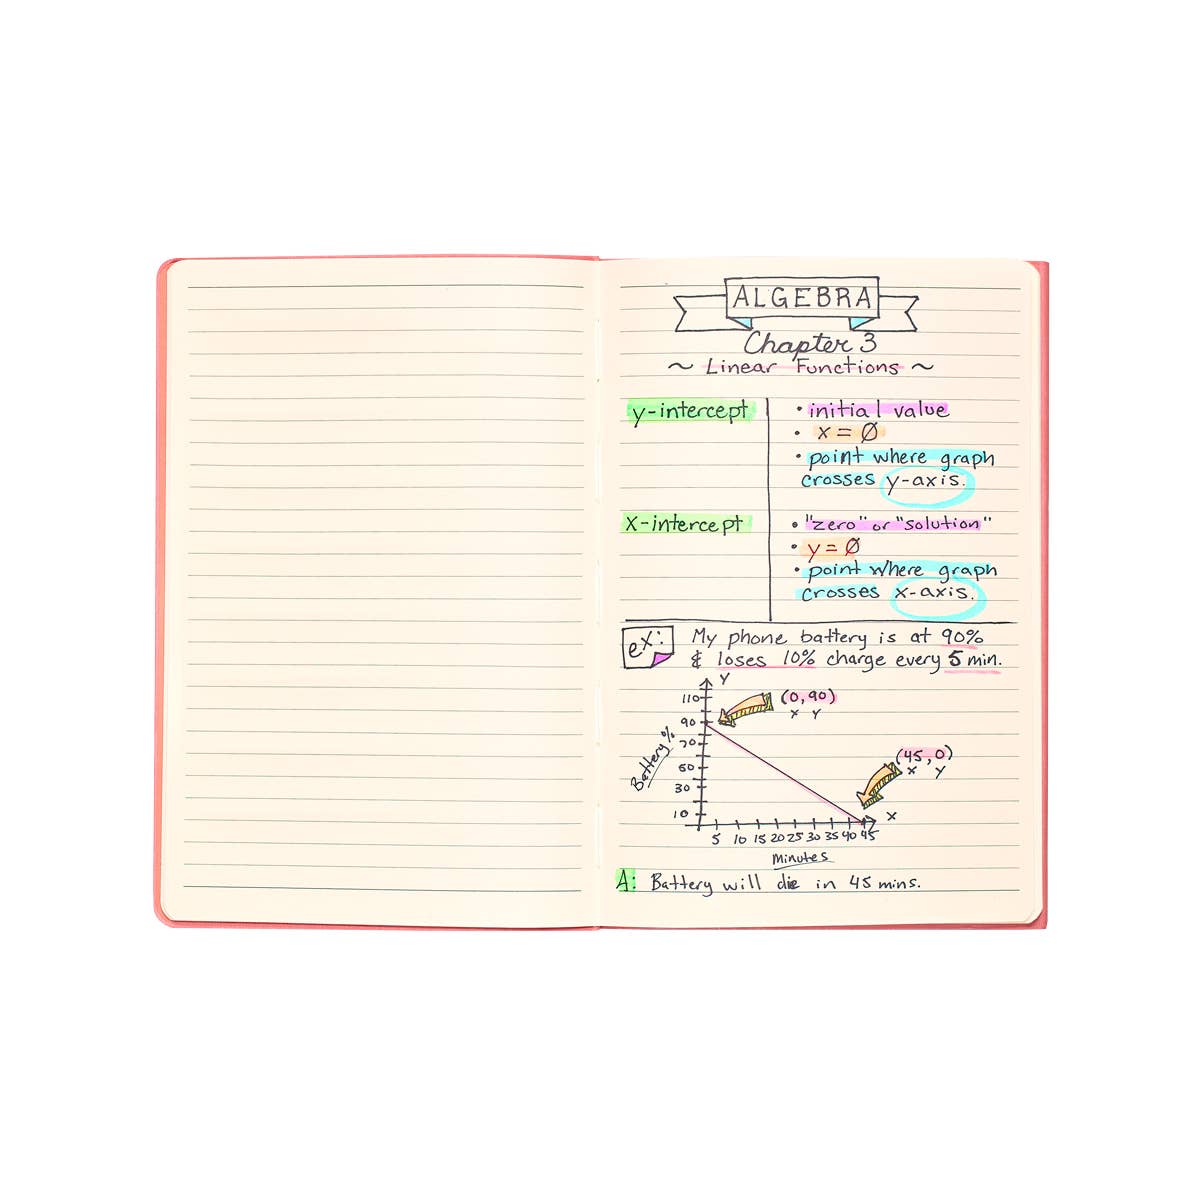 ALGEBRA
Chapter 3
~ Linear Functions ~
y-intercept
• initial value
• x = Ø
• point where graph
crosses y-axis.
x-intercept
• "zero" or "solution"
• y = Ø
• point where graph
crosses x-axis.
ex: My phone battery is at 90%
& loses 10% charge every 5 min.
Y
110
90
70
50
30
10
Battery %
(0, 90)
X Y
(45, 0)
X Y
X
5 10 15 20 25 30 35 40 45
Minutes
A: Battery will die in 45 mins.